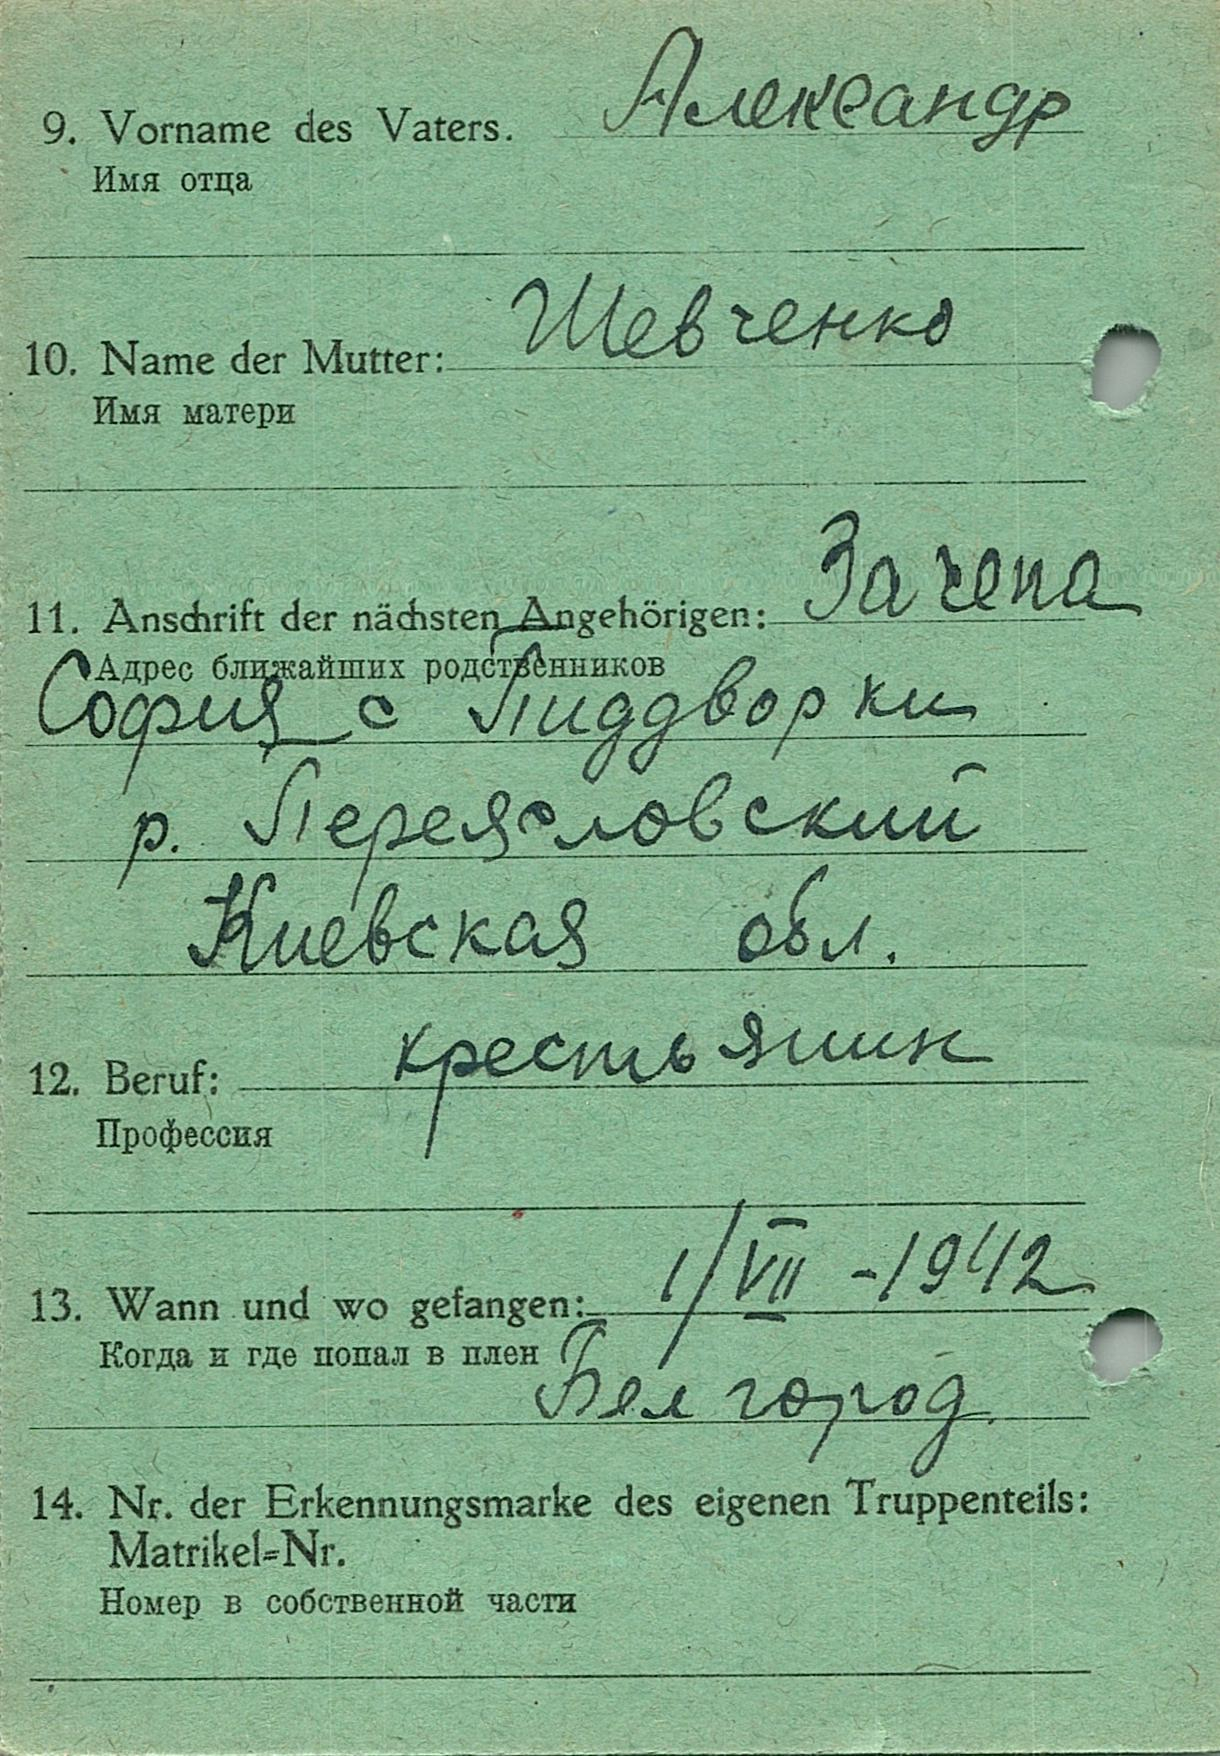 9. Vorname des Vaters. Александр
Имя отца
10. Name der Mutter: Шевченко
Имя матери
11. Anschrift der nächsten Angehörigen: Зачепа
Адрес ближайших родственников
София с Пиддворки
р. Переясловский
Киевская обл.
12. Beruf: крестьянин
Профессия
13. Wann und wo gefangen: 1/VII -1942
Когда и где попал в плен
Белгород.
14. Nr. der Erkennungsmarke des eigenen Truppenteils:
Matrikel=Nr.
Номер в собственной части